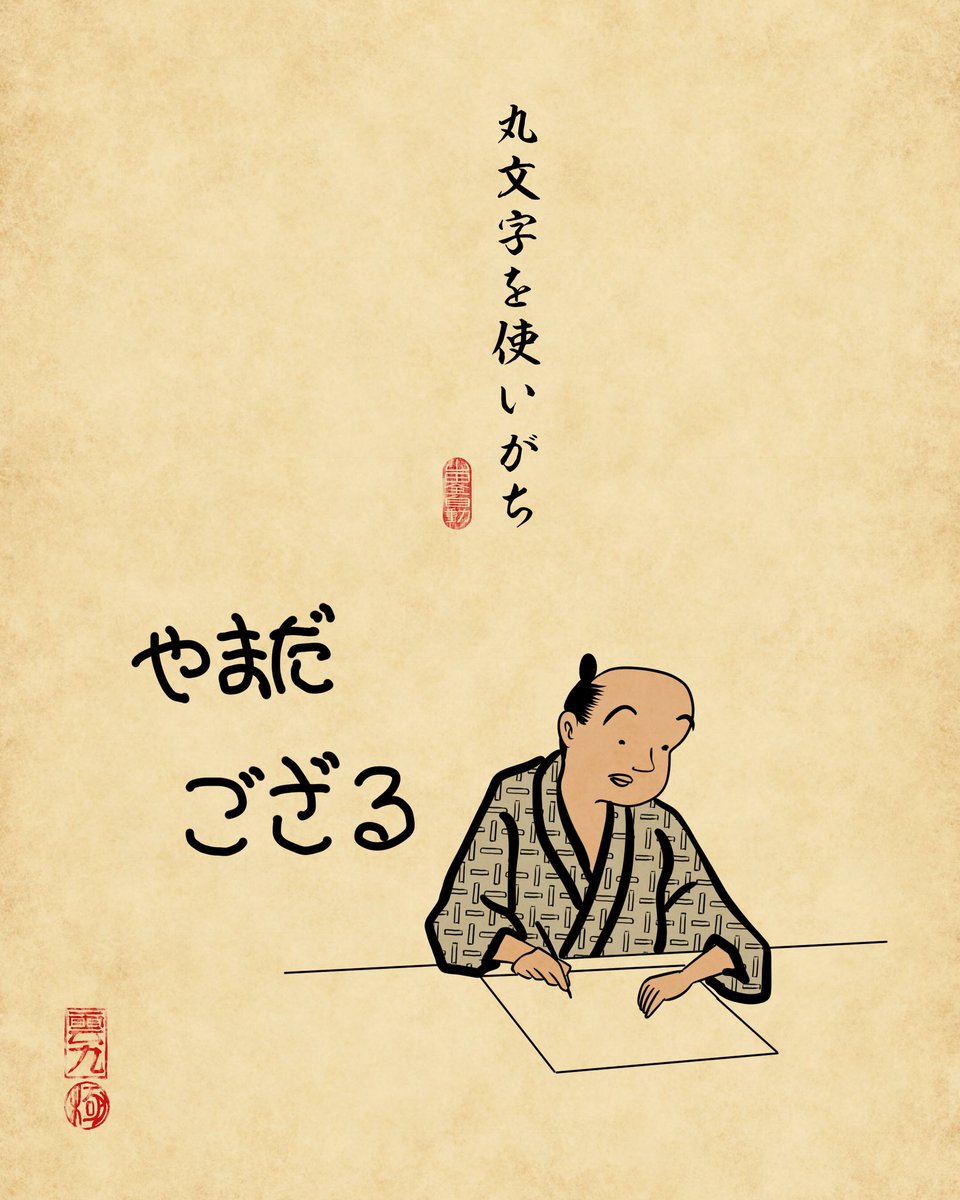 丸文字を使いがち
やまだ
ござる